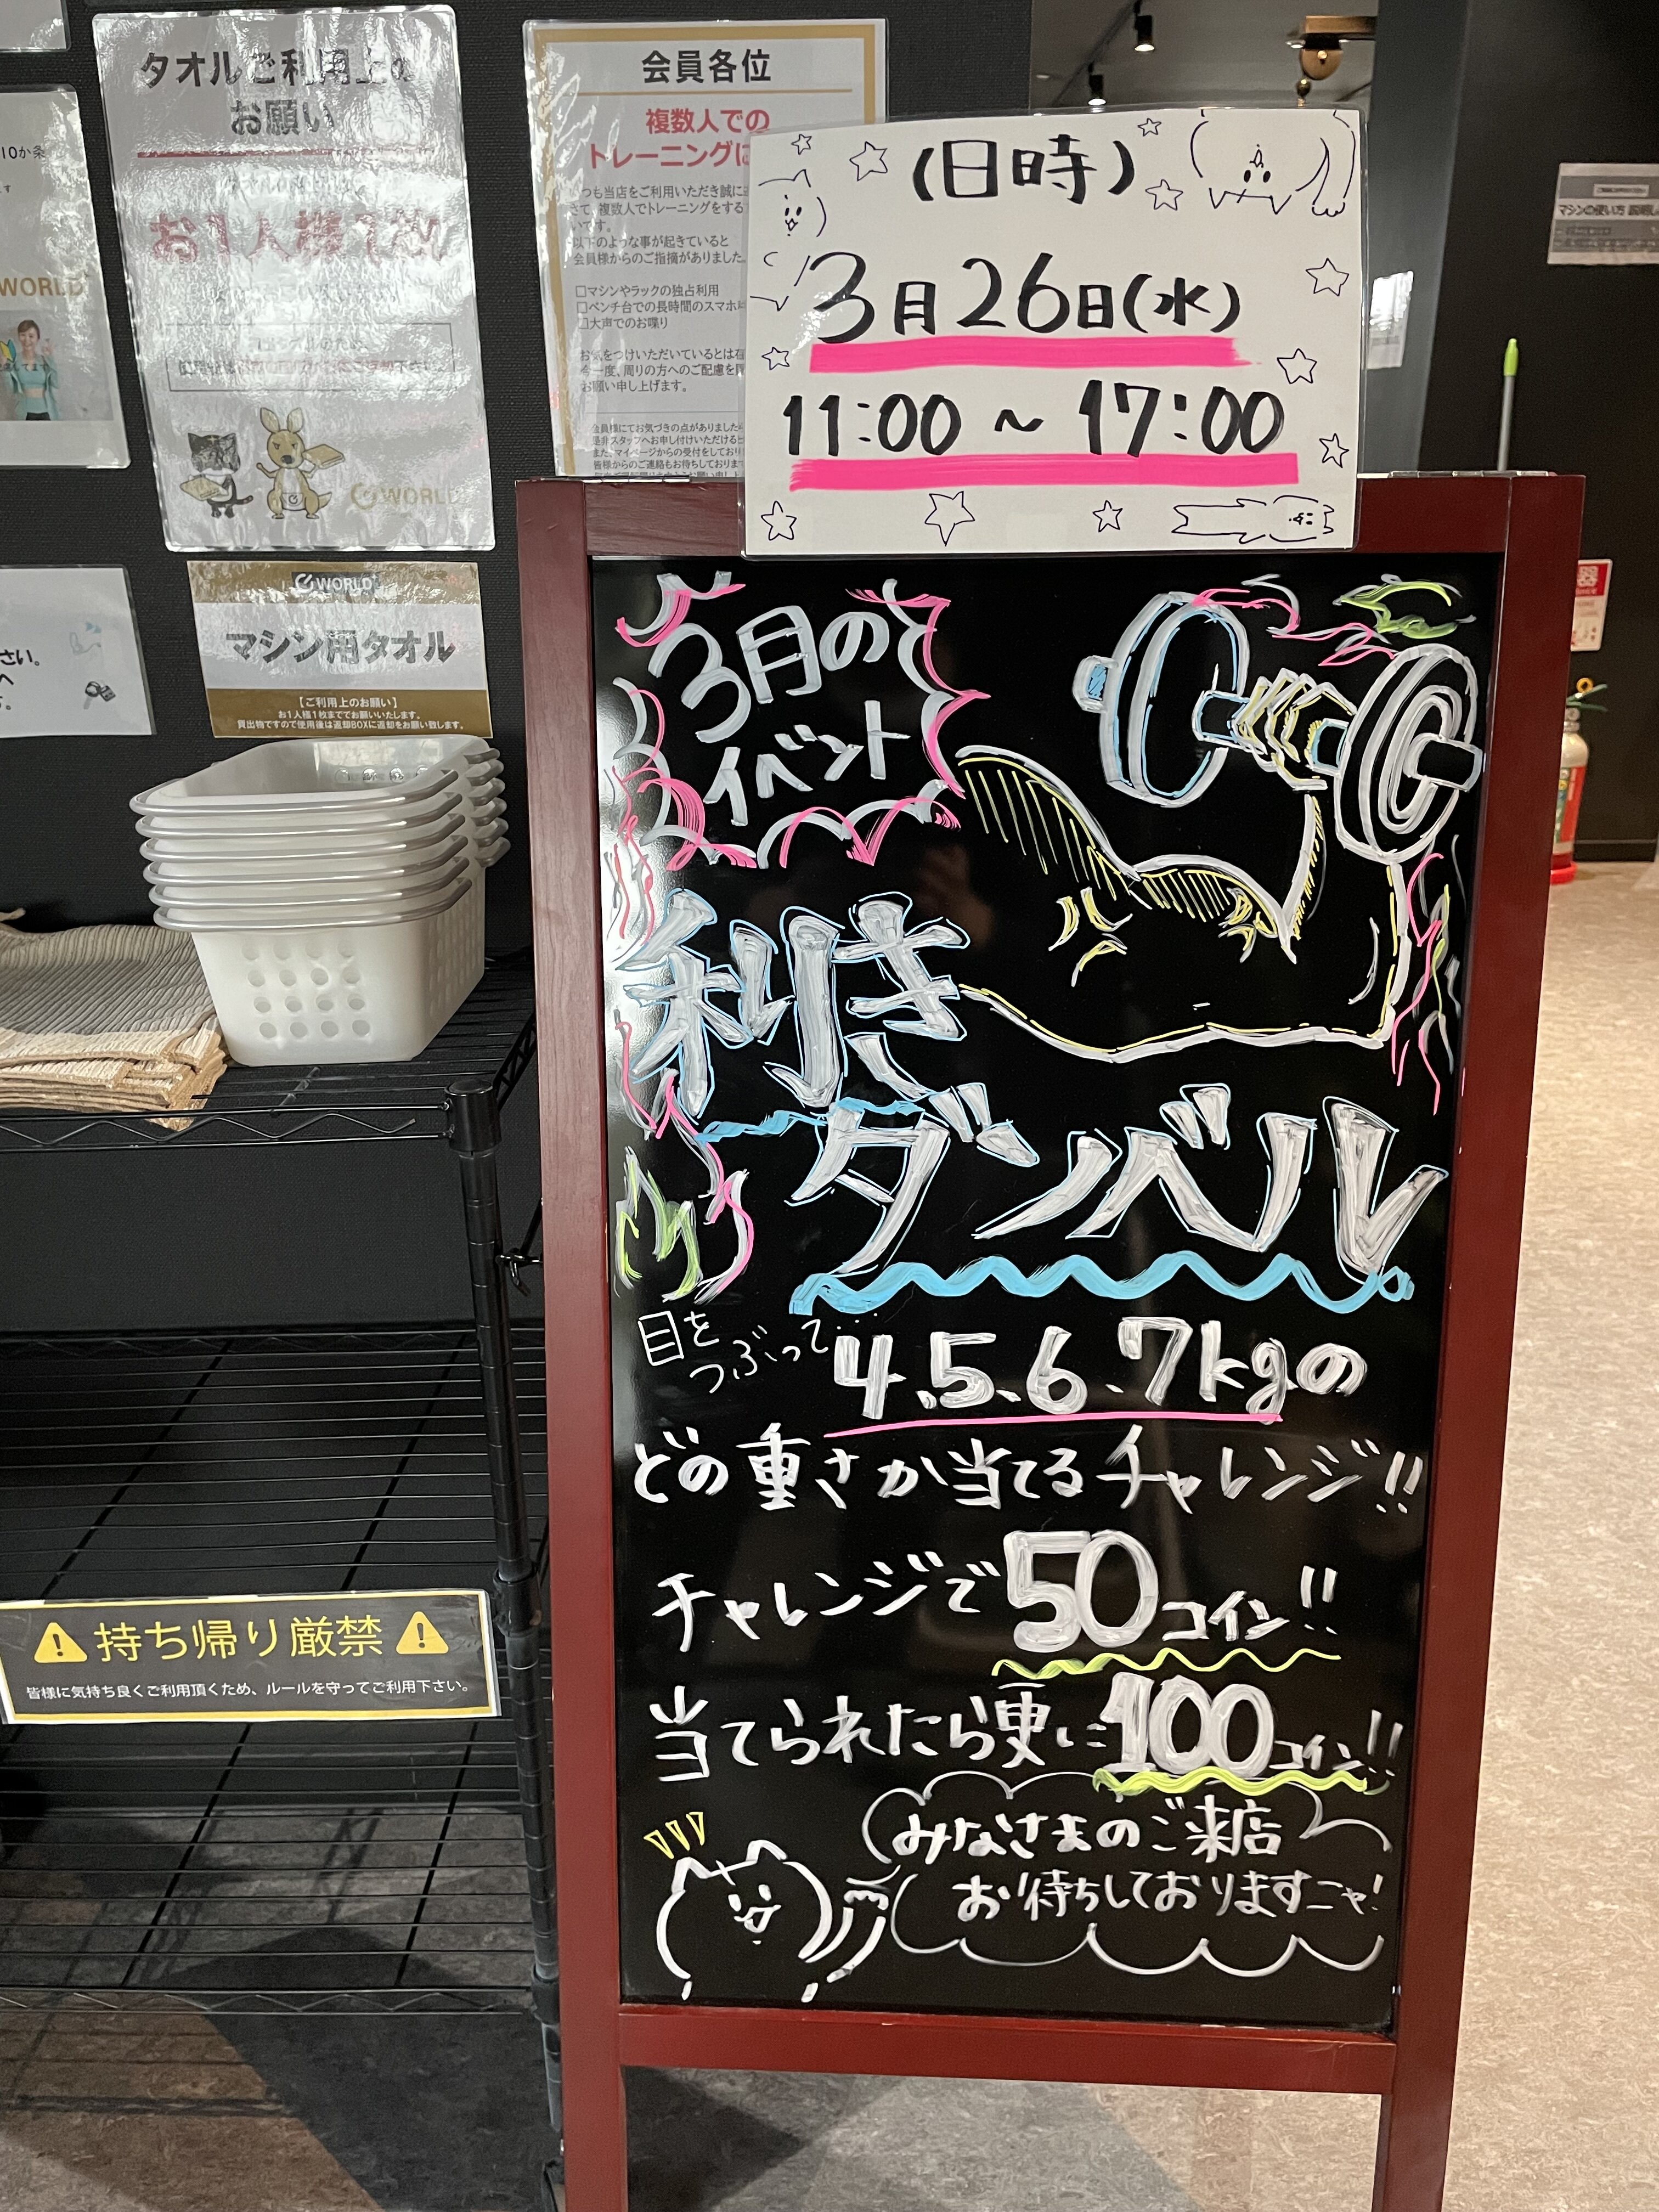 タオルご利用上の
お願い
お1人様1枚
WORLD
10か条
WORLD
さい。
WORLD
マシン用タオル
【ご利用上のお願い】
お1人様1枚まででお願いいたします。
貸出物ですので使用後は返却BOXに返却をお願い致します。
会員各位
複数人での
トレーニングに
いつも当店をご利用いただき誠に
さて、複数人でトレーニングをする
いです。
以下のような事が起きていると
会員様からのご指摘がありました。
□マシンやラックの独占利用
□ベンチ台での長時間のスマホ
□大声でのお喋り
お気をつけいただいているとは
今一度、周りの方へのご配慮を
お願い申し上げます。
会員様にてお気づきの点がありました
是非スタッフへお申し付けいただける
また、マイページからの受付をしており
皆様からのご連絡もお待ちしておりま
(日時)
3月26日(水)
11:00～17:00
マシンの使い方
3月の
イベント
利き
ダンベル
目を
つぶって…
4.5.6.7kgの
どの重さか当てるチャレンジ!!
チャレンジで50コイン!!
当てられたら更に100コイン!!
みなさまのご来店
お待ちしておりますニャ!
持ち帰り厳禁
皆様に気持ち良くご利用頂くため、ルールを守ってご利用下さい。